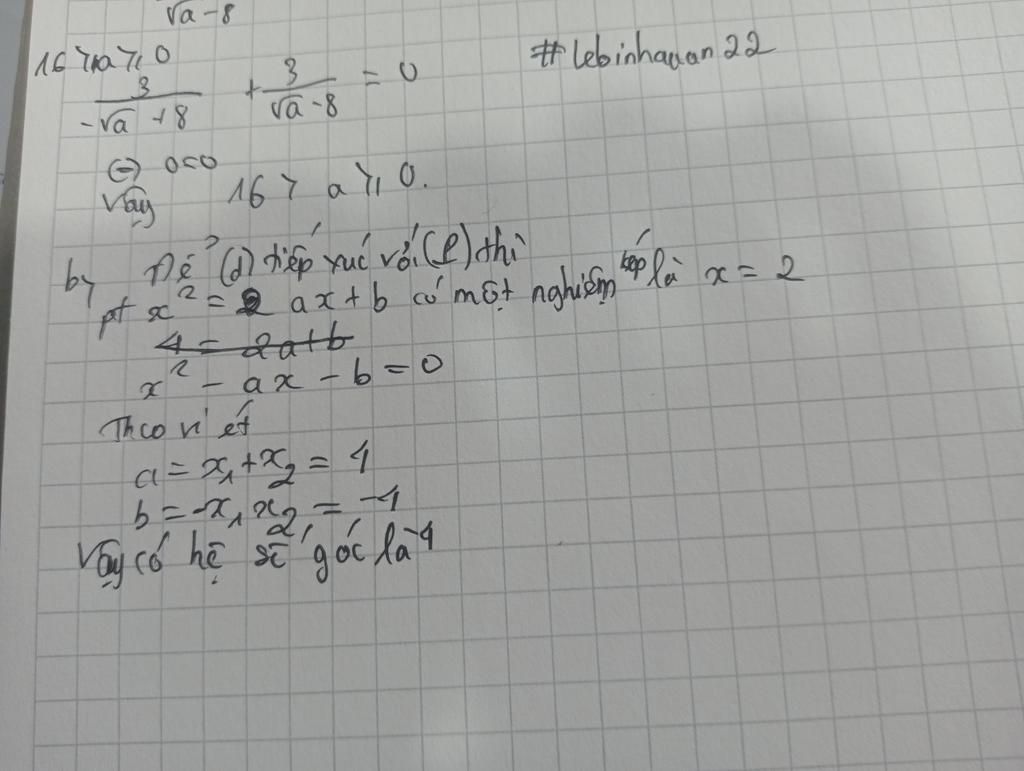 √a - 8
16 > a ≥ 0
3/(-√a + 8) + 3/(√a - 8) = 0
#lebinhauan22
⇔ 0=0
Vậy 16 > a ≥ 0.
b, Để (d) tiếp xúc với (P) thì
pt x² = ax + b có một nghiệm kép là x = 2
4 = 2a + b
x² - ax - b = 0
Theo vi ét
a = x₁ + x₂ = 4
b = -x₁x₂ = -4
Vậy có hệ số góc là 4